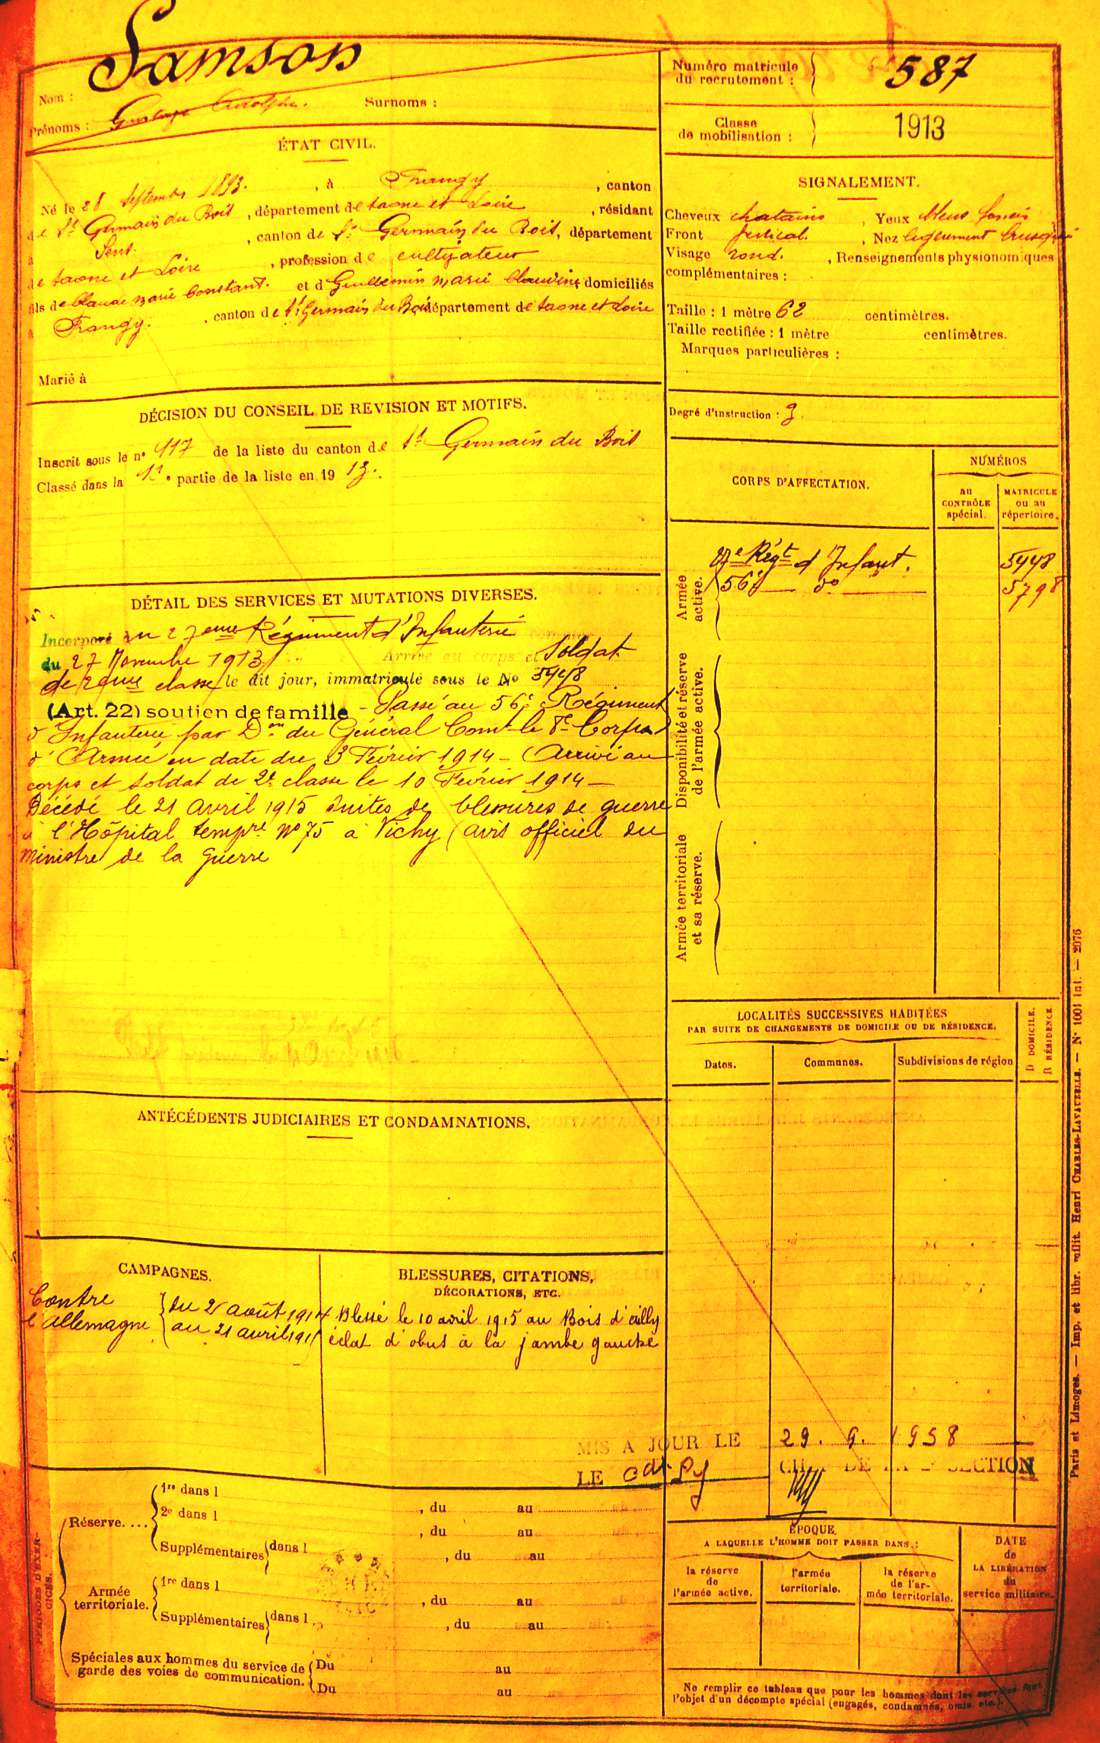 Samson
Nom :
Prénoms : Gustave Adolphe. Surnoms :
ÉTAT CIVIL.
Né le 28 Septembre 1893. , à Frangy , canton
de St Germain du Bois , département de Saône et Loire , résidant
à Sens. , canton de St Germain du Bois, département
de Saône et Loire , profession de cultivateur
fils de Claude Marie Constant. et de Guillemin Marie domiciliés
à Frangy. , canton de St Germain du Bois département de Saône et Loire
Marié à
DÉCISION DU CONSEIL DE REVISION ET MOTIFS.
Inscrit sous le no 417 de la liste du canton de St Germain du Bois
Classé dans la 1e partie de la liste en 1913.
DÉTAIL DES SERVICES ET MUTATIONS DIVERSES.
Incorporé au 27eme Régiment d'Infanterie
du 27 Novembre 1913 Arrivé au corps et Soldat
de 2eme classe le dit jour, immatriculé sous le No 5448
(Art. 22) soutien de famille - Passé au 56e Régiment
d'Infanterie par Don du Général Comt le 8e Corps
d'Armée en date du 3 Février 1914 - Arrivé au
corps et soldat de 2e classe le 10 Février 1914 -
Décédé le 21 avril 1915 suites de blessures de guerre
à l'Hôpital tempre No 75 à Vichy (avis officiel du
Ministre de la Guerre
ANTÉCÉDENTS JUDICIAIRES ET CONDAMNATIONS.
CAMPAGNES.
Contre
l'Allemagne
du 2 août 1914
au 21 avril 1915
BLESSURES, CITATIONS,
DÉCORATIONS, ETC.
Blessé le 10 avril 1915 au Bois d'ailly
éclat d'obus à la jambe gauche
PÉRIODES D'EXERCICES.
Réserve. ...
1re dans l , du au
2e dans l , du au
Supplémentaires dans l , du au
Armée
territoriale.
1re dans l , du au
Supplémentaires dans l , du au
Spéciales aux hommes du service de
garde des voies de communication.
Du au
Du au
Numéro matricule
du recrutement : 587
Classe
de mobilisation : 1913
SIGNALEMENT.
Cheveux chatains Yeux bleus foncés
Front vertical , Nez légèrement busqué
Visage rond. , Renseignements physionomiques
complémentaires :
Taille : 1 mètre 62 centimètres.
Taille rectifiée : 1 mètre centimètres.
Marques particulières :
Degré d'instruction : 3
CORPS D'AFFECTATION.
NUMÉROS
au
CONTRÔLE
spécial.
MATRICULE
ou au
répertoire.
Armée
active.
27e Régt d'Infant. 5448
56e do 5798
Disponibilité et réserve
de l'armée active.
Armée territoriale
et sa réserve.
LOCALITÉS SUCCESSIVES HABITÉES
PAR SUITE DE CHANGEMENTS DE DOMICILE OU DE RÉSIDENCE.
Dates. Communes. Subdivisions de région
D DOMICILE.
R RÉSIDENCE.
MIS A JOUR LE 29. 9. 1958
LE CHEF DE LA SECTION
ÉPOQUE
A LAQUELLE L'HOMME DOIT PASSER DANS :
la réserve
de
l'armée active.
l'armée
territoriale.
la réserve
de l'ar-
mée territoriale.
DATE
de
LA LIBÉRATION
du
service militaire.
Ne remplir ce tableau que pour les hommes dont les services font
l'objet d'un décompte spécial (engagés, condamnés, omis, etc.).
Paris et Limoges. — Imp. et libr. milit. Henri CHARLES-LAVAUZELLE. — No 1001 int. — 2076